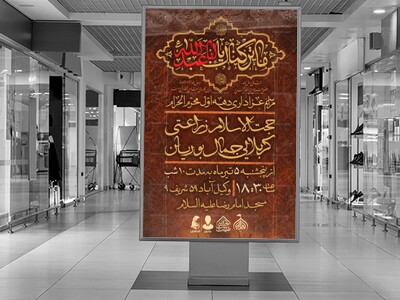 مراسم عزاداری دهه اول محرم الحرام
حجت الاسلام زراعتی
کربلایی جمال پوریان
از پنجشنبه ۵ تیرماه بمدت ۱۰ شب
ساعت ۱۸:۳۰ وکیل آباد ۵۹ شریف ۹
مسجد امام رضا علیه السلام